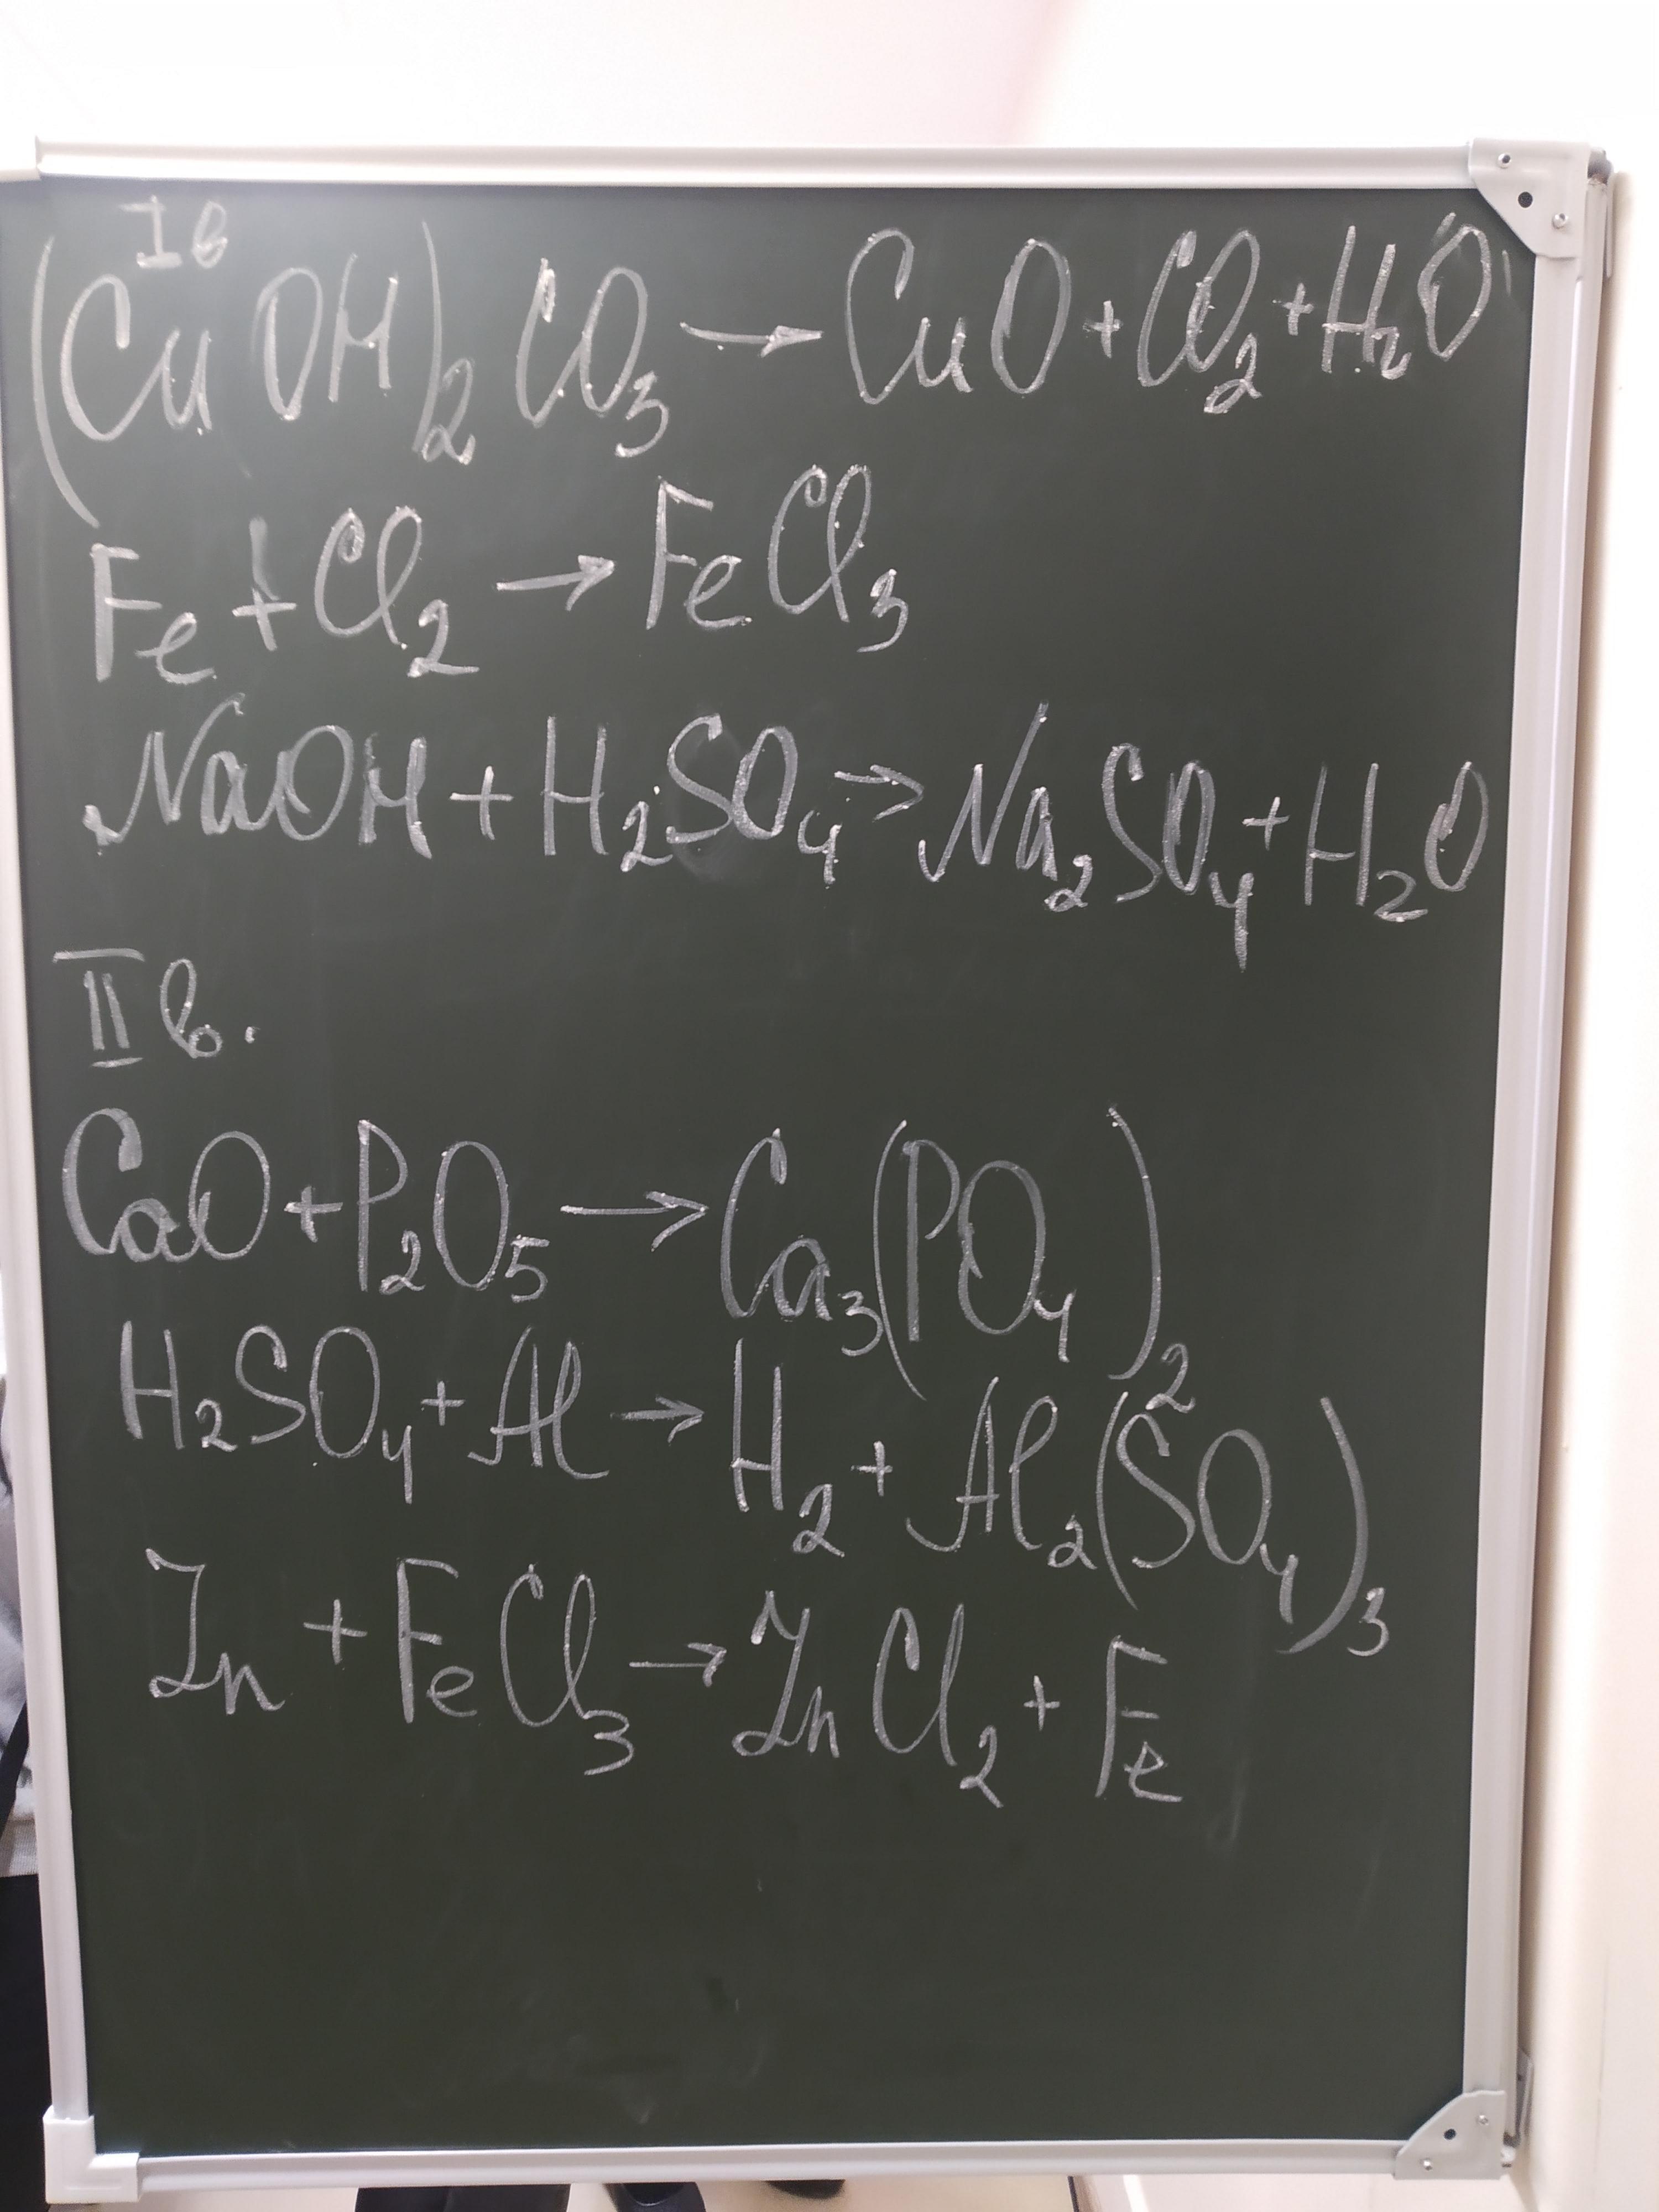 I в
(CuOH)₂CO₃ → CuO + CO₂ + H₂O
Fe + Cl₂ → FeCl₃
NaOH + H₂SO₄ → Na₂SO₄ + H₂O
II в.
CaO + P₂O₅ → Ca₃(PO₄)₂
H₂SO₄ + Al → H₂ + Al₂(SO₄)₃
Zn + FeCl₃ → ZnCl₂ + Fe